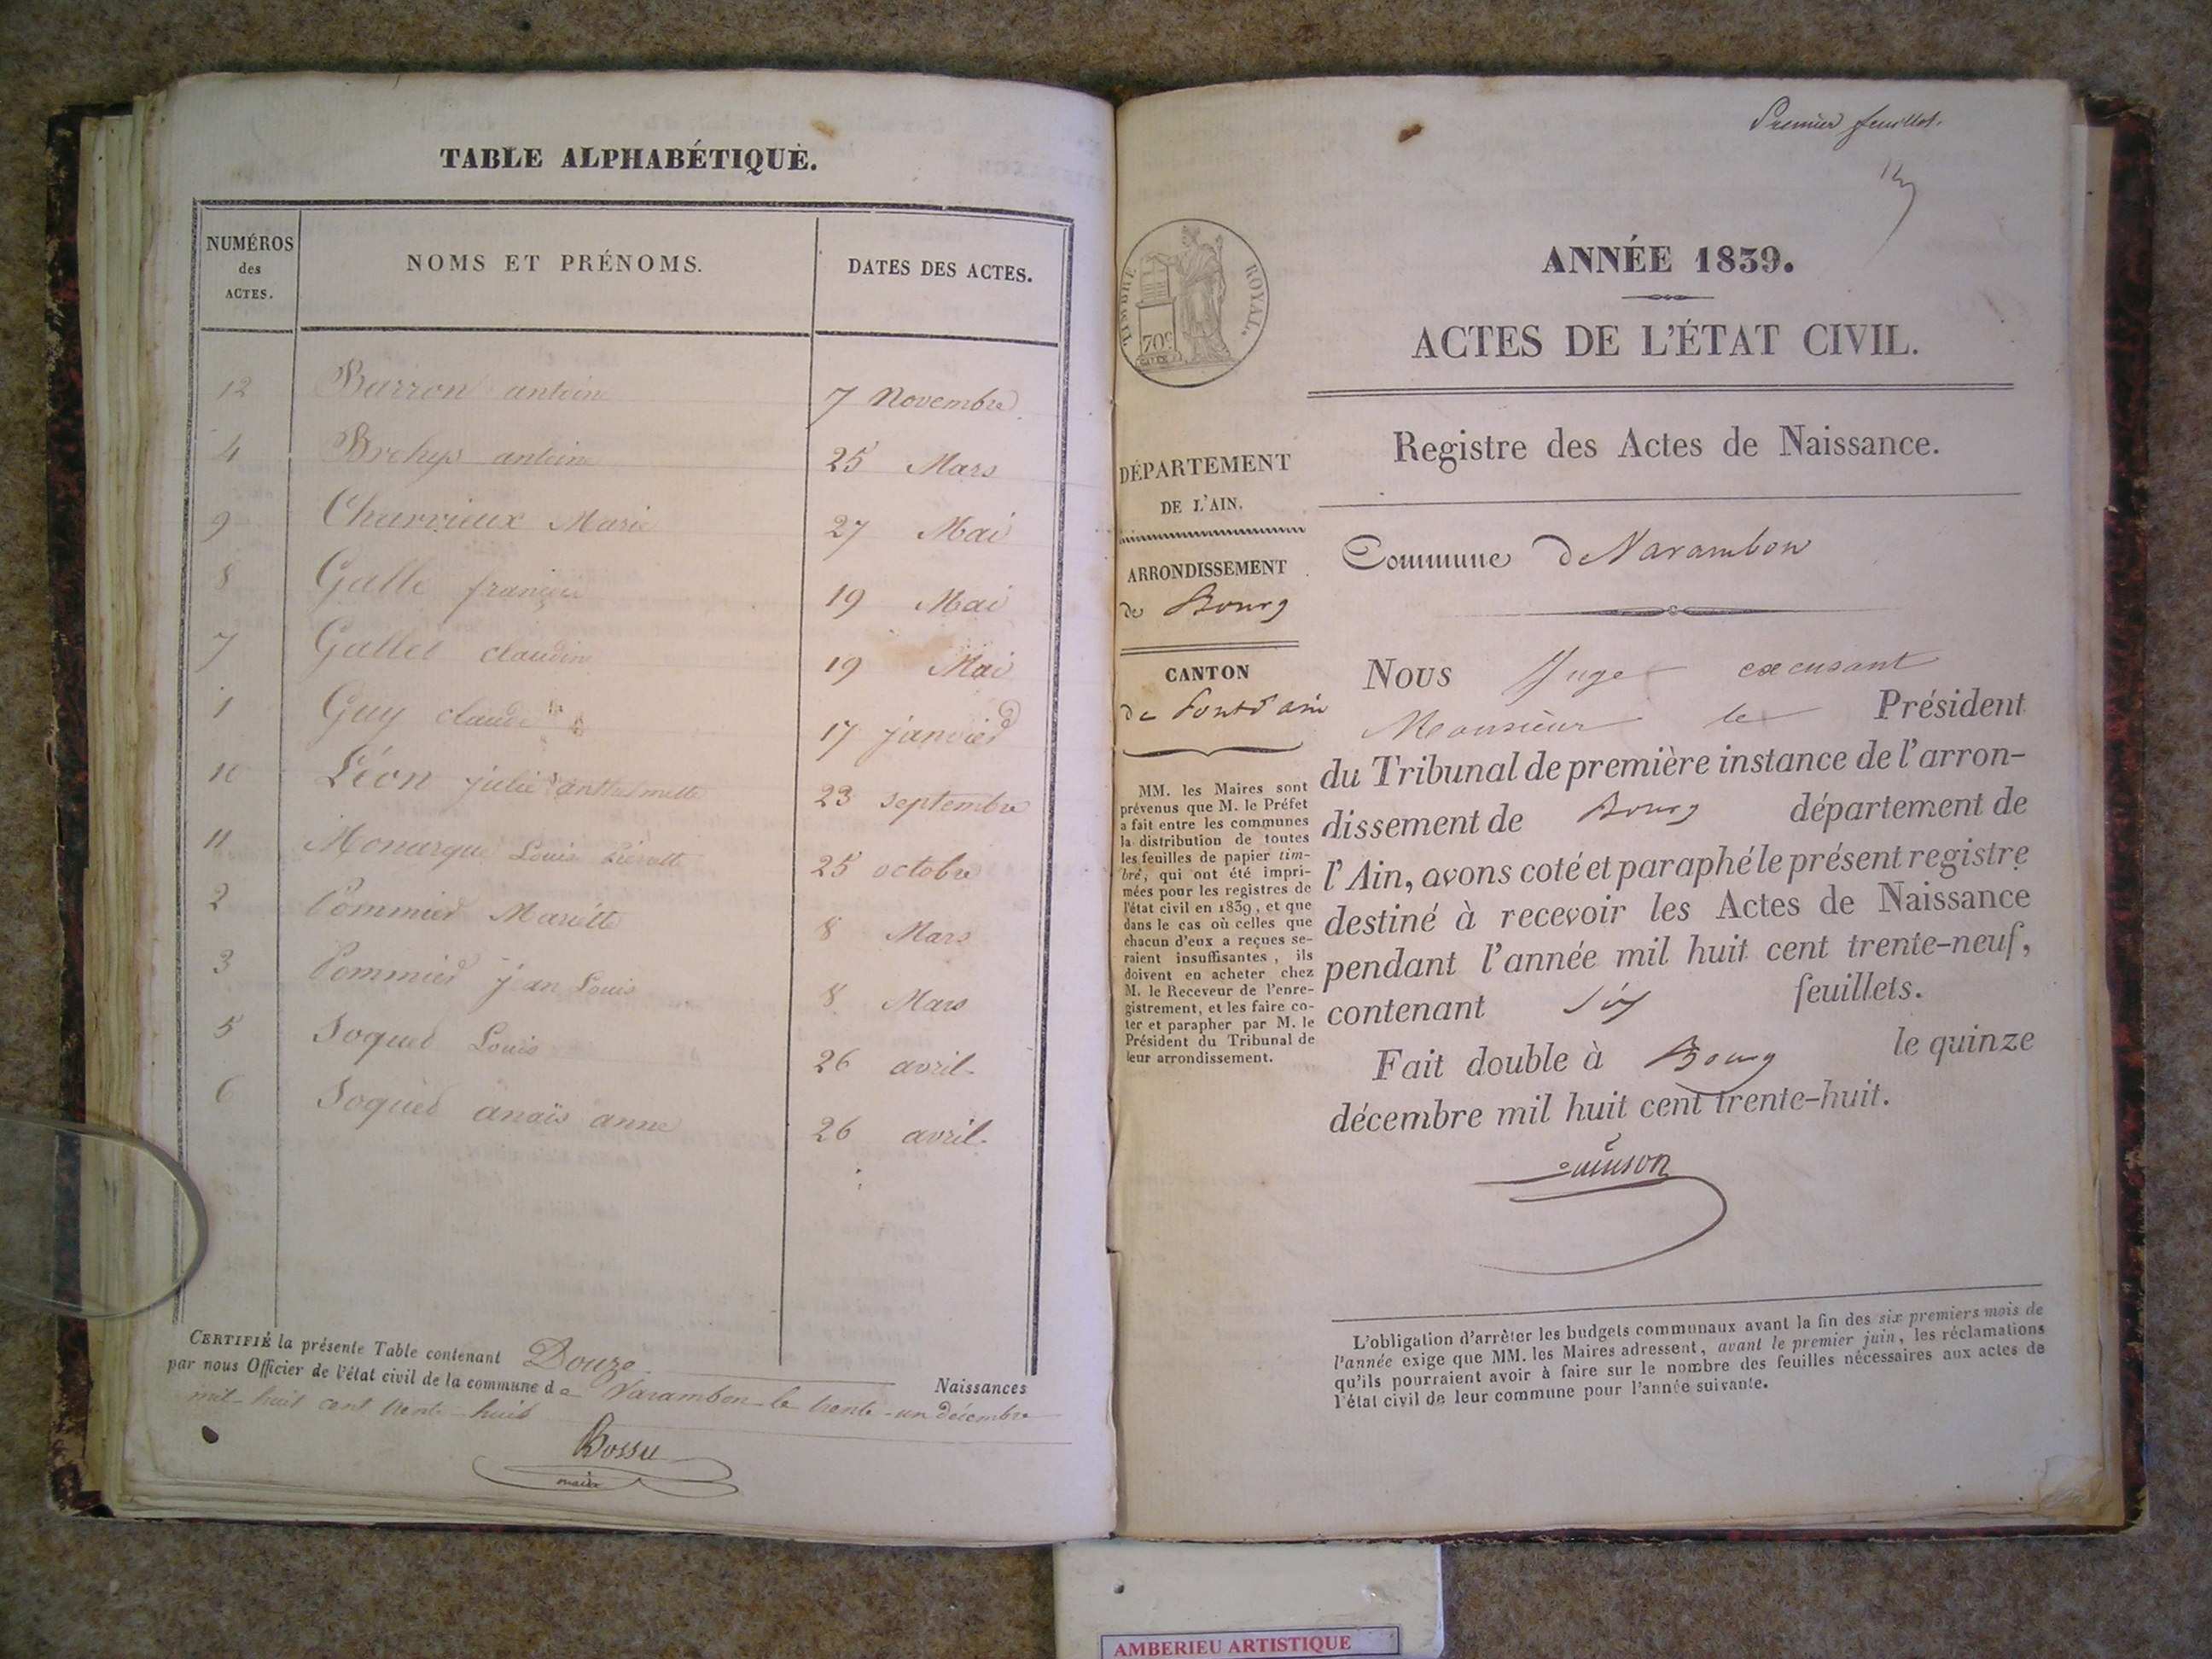 TABLE ALPHABÉTIQUE.
NUMÉROS
des
ACTES.
NOMS ET PRÉNOMS.
DATES DES ACTES.
12 Barron antoine 7 Novembre
4 antoine 25 Mars
9 Charvieux Marie 27 Mai
8 Galle 19 Mai
7 Gallet claudine 19 Mai
1 Guy claude 17 janvier
10 Léon julie anthelmette 23 septembre
11 Monarque Louis 25 octobre
2 Pommier Mariette 8 Mars
3 Pommier jan Louis 8 Mars
5 Soquet Louis 26 avril.
6 Soquet anaïs anne 26 avril.
CERTIFIÉ la présente Table contenant Douze Naissances
par nous Officier de l'état civil de la commune de Varambon le trente-un décembre
mil huit cent trente-huit
Bossu
maire
Premier feuillet.
TIMBRE ROYAL.
70c
ANNÉE 1839.
ACTES DE L'ÉTAT CIVIL.
Registre des Actes de Naissance.
DÉPARTEMENT
DE L'AIN.
ARRONDISSEMENT
de Bourg
CANTON
de Pontd'ain
MM. les Maires sont
prévenus que M. le Préfet
a fait entre les communes
la distribution de toutes
les feuilles de papier tim-
bré, qui ont été impri-
mées pour les registres de
l'état civil en 1839, et que
dans le cas où celles que
chacun d'eux a reçues se-
raient insuffisantes, ils
doivent en acheter chez
M. le Receveur de l'enre-
gistrement, et les faire co-
ter et parapher par M. le
Président du Tribunal de
leur arrondissement.
Commune de Varambon
Nous Juge excusant
Monsieur le Président
du Tribunal de première instance de l'arron-
dissement de Bourg département de
l'Ain, avons coté et paraphé le présent registre
destiné à recevoir les Actes de Naissance
pendant l'année mil huit cent trente-neuf,
contenant six feuillets.
Fait double à Bourg le quinze
décembre mil huit cent trente-huit.
L'obligation d'arrêter les budgets communaux avant la fin des six premiers mois de
l'année exige que MM. les Maires adressent, avant le premier juin, les réclamations
qu'ils pourraient avoir à faire sur le nombre des feuilles nécessaires aux actes de
l'état civil de leur commune pour l'année suivante.
AMBERIEU ARTISTIQUE